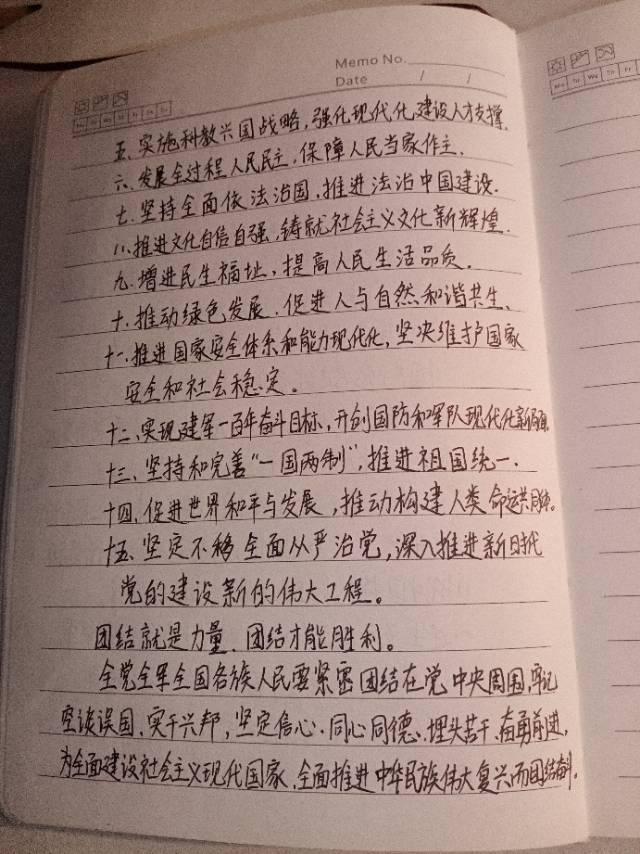 Memo No.
Date / /
五、实施科教兴国战略，强化现代化建设人才支撑.
六、发展全过程人民民主，保障人民当家作主.
七、坚持全面依法治国，推进法治中国建设.
八、推进文化自信自强，铸就社会主义文化新辉煌.
九、增进民生福址，提高人民生活品质.
十、推动绿色发展，促进人与自然和谐共生、
十一、推进国家安全体系和能力现代化，坚决维护国家
安全和社会稳定。
十二、实现建军一百年奋斗目标，开创国防和军队现代化新局面.
十三、坚持和完善“一国两制”，推进祖国统一.
十四、促进世界和平与发展，推动构建人类命运共同体。
十五、坚定不移全面从严治党，深入推进新时代
党的建设新的伟大工程。
团结就是力量，团结才能胜利。
全党全军全国各族人民要紧密团结在党中央周围，牢记
空谈误国、实干兴邦，坚定信心、同心同德、埋头苦干、奋勇前进，
为全面建设社会主义现代国家、全面推进中华民族伟大复兴而团结奋斗.